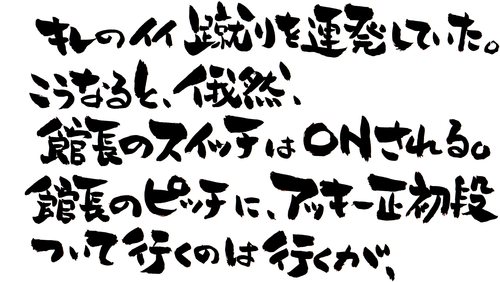 キレのイイ蹴りを連発していた。
こうなると、俄然、
館長のスイッチはONされる。
館長のピッチに、アッキー正初段
ついて行くのは行くが、